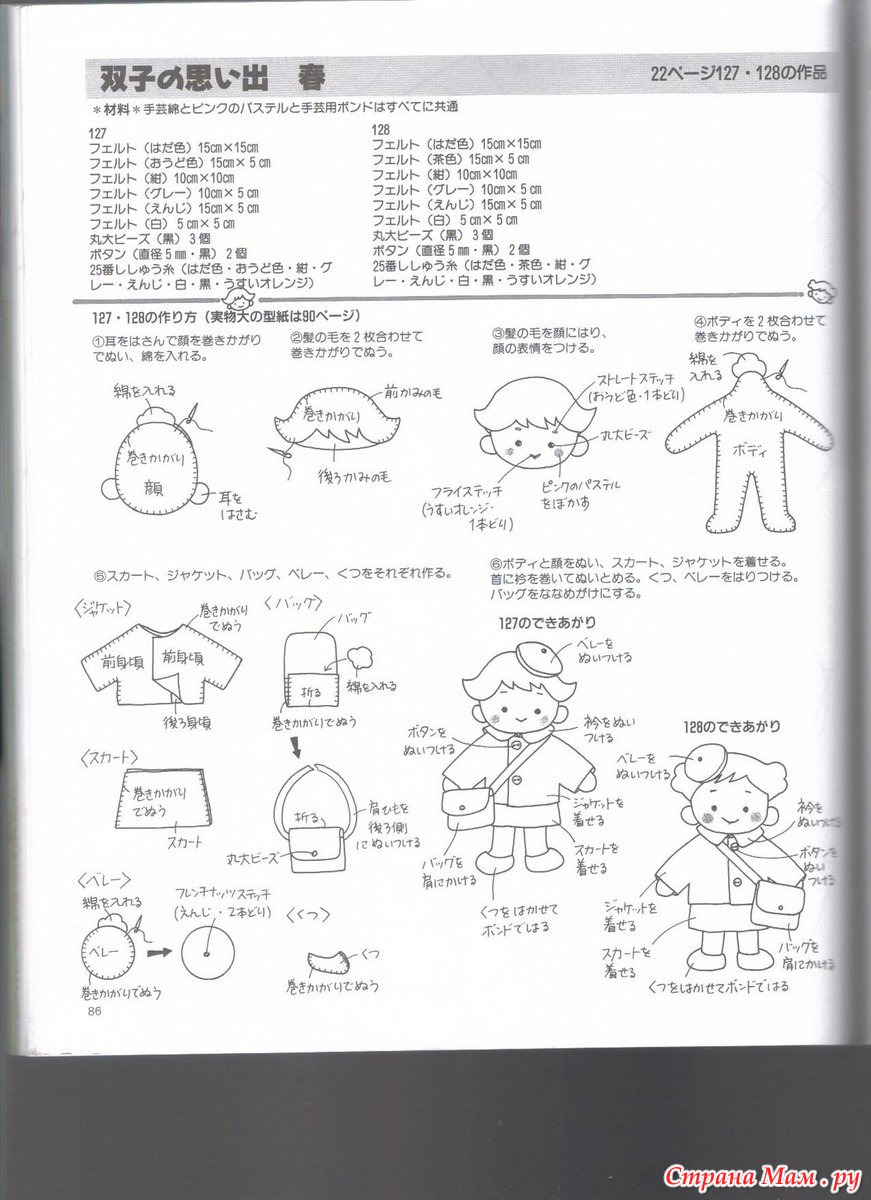 双子の思い出 春
22ページ127・128の作品
*材料*手芸綿とピンクのパステルと手芸用ボンドはすべてに共通
127
フェルト（はだ色）15cm×15cm
フェルト（おうど色）15cm×5cm
フェルト（紺）10cm×10cm
フェルト（グレー）10cm×5cm
フェルト（えんじ）15cm×5cm
フェルト（白）5cm×5cm
丸大ビーズ（黒）3個
ボタン（直径5mm・黒）2個
25番ししゅう糸（はだ色・おうど色・紺・グ
レー・えんじ・白・黒・うすいオレンジ）
128
フェルト（はだ色）15cm×15cm
フェルト（茶色）15cm×5cm
フェルト（紺）10cm×10cm
フェルト（グレー）10cm×5cm
フェルト（えんじ）15cm×5cm
フェルト（白）5cm×5cm
丸大ビーズ（黒）3個
ボタン（直径5mm・黒）2個
25番ししゅう糸（はだ色・茶色・紺・グ
レー・えんじ・白・黒・うすいオレンジ）
127・128の作り方（実物大の型紙は90ページ）
①耳をはさんで顔を巻きかがり
でぬい、綿を入れる。
綿を入れる
巻きかがり
顔
耳を
はさむ
②髪の毛を2枚合わせて
巻きかがりでぬう。
前かみの毛
巻きかがり
後ろかみの毛
③髪の毛を顔にはり、
顔の表情をつける。
ストレートステッチ
（おうど色・1本どり）
丸大ビーズ
フライステッチ
（うすいオレンジ・
1本どり）
ピンクのパステル
をぼかす
④ボディを2枚合わせて
巻きかがりでぬう。
綿を
入れる
巻きかがり
ボディ
⑤スカート、ジャケット、バッグ、ベレー、くつをそれぞれ作る。
〈ジャケット〉
巻きかがり
でぬう
前身頃
前身頃
後ろ身頃
〈バッグ〉
バッグ
折る
綿を入れる
巻きかがりでぬう
〈スカート〉
巻きかがり
でぬう
スカート
折る
肩ひもを
後ろ側
にぬいつける
丸大ビーズ
〈ベレー〉
綿を入れる
ベレー
巻きかがりでぬう
フレンチナッツステッチ
（えんじ・2本どり）
〈くつ〉
くつ
巻きかがりでぬう
⑥ボディと顔をぬい、スカート、ジャケットを着せる。
首に衿を巻いてぬいとめる。くつ、ベレーをはりつける。
バッグをななめがけにする。
127のできあがり
ベレーを
ぬいつける
ボタンを
ぬいつける
衿をぬい
つける
ジャケットを
着せる
スカートを
着せる
バッグを
肩にかける
くつをはかせて
ボンドではる
128のできあがり
ベレーを
ぬいつける
衿を
ぬいつける
ボタンを
ぬい
つける
ジャケットを
着せる
スカートを
着せる
バッグを
肩にかける
くつをはかせてボンドではる
86
Страна Мам.ру